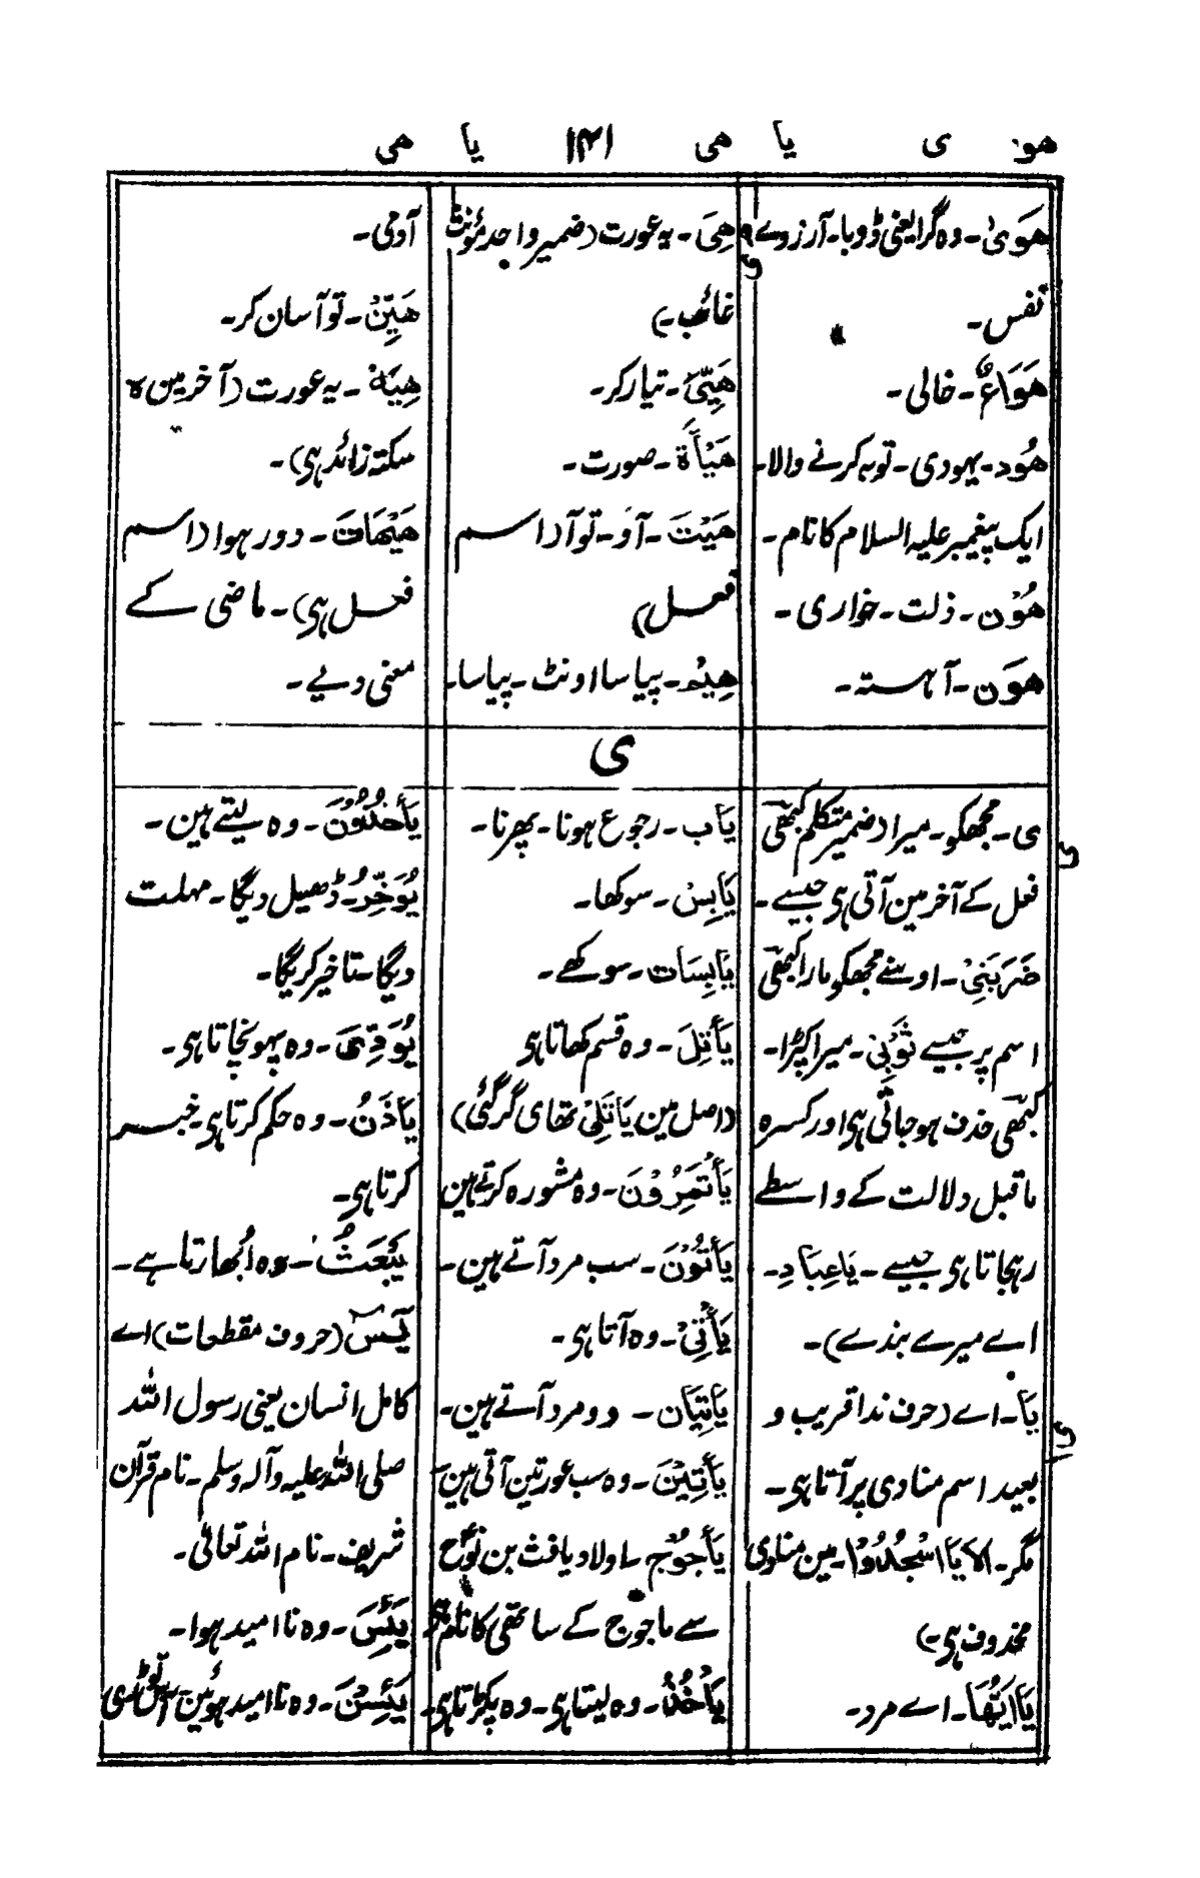 هو ی یا هی ۱۴۱ یا هی
هَویٰ۔ وہ گرا یعنی ڈوبا۔ آرزوے
نفس۔
هَوَاءٌ۔ خالی۔
هُود۔ یہودی۔ توبہ کرنے والا۔
ایک پیغمبر علیہ السلام کا نام۔
هُوْن۔ ذلت۔ خواری۔
هَوَن۔ آہستہ۔
هِیَ۔ یہ عورت (ضمیر واحد مؤنث
غائب۔)
هَیِّئْ۔ تیار کر۔
هَیْأَة۔ صورت۔
هَیْتَ۔ آؤ۔ تو آ (اسم
فعل)
هِیْم۔ پیاسا اونٹ۔ پیاسا۔
آدمی۔
هَیِّنْ۔ تو آسان کر۔
هِیَهْ۔ یہ عورت (آخر مین ہ
سکتہ زائد ہی)۔
هَیْهَاتَ۔ دور ہوا (اسم
فعل ہی)۔ ماضی کے
معنی دیے۔
ی
ی۔ مجھکو۔ میرا (ضمیر متکلم کبھی
فعل کے آخر مین آتی ہی جیسے۔
ضَرَبَنِیْ۔ اوسنے مجھکو مارا کبھی
اسم پر جیسے ثَوْبِیْ۔ میرا کپڑا۔
کبھی حذف ہو جاتی ہی اور کسرہ
ماقبل دلالت کے واسطے
رہجاتا ہی جیسے۔ یَاعِبَادِ۔
اے میرے بندے)۔
یَا۔ اے (حرف ندا قریب و
بعید اسم منادی پر آتا ہی۔
مگر۔ الا یَا اسْجُدُوْا۔ مین منادی
محذوف ہی۔)
یَااَیُّهَا۔ اے مرد۔
یَاب۔ رجوع ہونا۔ پھرنا۔
یَابِسْ۔ سوکھا۔
یَابِسَات۔ سوکھے۔
یَأْتَلِ۔ وہ قسم کھاتا ہی
(اصل مین یَاتَلِیْ تھا ی گر گئی)
یَأْتَمِرُوْنَ۔ وہ مشورہ کرتے ہین
یَأْتُوْنَ۔ سب مرد آتے ہین۔
یَأْتِیْ۔ وہ آتا ہی۔
یَأْتِیَان۔ دو مرد آتے ہین۔
یَأْتِیْنَ۔ وہ سب عورتین آتی ہین۔
یَأْجُوْج۔ اولاد یافث بن نوح
سے ماجوج کے ساتھی کا نام
یَأْخُذُ۔ وہ لیتا ہی۔ وہ پکڑتا ہی۔
یَأْخُذُوْنَ۔ وہ لیتے ہین۔
یُؤَخِّرُ۔ ڈھیل دیگا۔ مہلت
دیگا۔ تاخیر کریگا۔
یُؤَدِّی۔ وہ پہونچاتا ہی۔
یَاذَنُ۔ وہ حکم کرتا ہی۔ خبر
کرتا ہی۔
یَبْعَثُ۔ وہ اُبھارتا ہے۔
یٰسٓ (حروف مقطعات) اے
کامل انسان یعنی رسول اللہ
صلی اللہ علیہ وآلہ وسلم۔ نام قرآن
شریف۔ نام اللہ تعالیٰ۔
یَئِسَ۔ وہ ناامید ہوا۔
یَئِسْنَ۔ وہ ناامید ہوئین